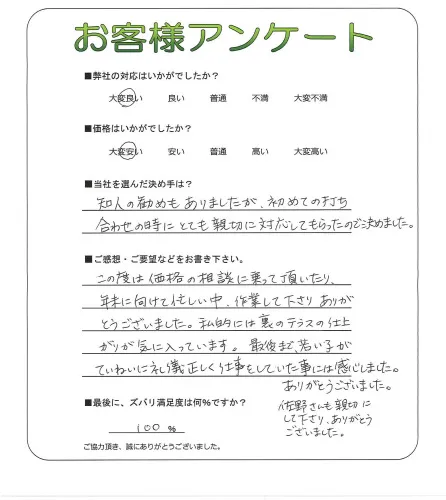 お客様アンケート
■弊社の対応はいかがでしたか?
大変良い 良い 普通 不満 大変不満
■価格はいかがでしたか?
大変安い 安い 普通 高い 大変高い
■当社を選んだ決め手は?
知人の勧めもありましたが、初めての打ち
合わせの時にとても親切に対応してもらったので決めました。
■ご感想・ご要望などをお書き下さい。
この度は価格の相談に乗って頂いたり、
年末に向けて忙しい中、作業して下さりありが
とうございました。私的には裏のテラスの仕上
がりが気に入っています。最後まで、若い子が
ていねいに礼儀正しく仕事をしていた事には感心しました。
ありがとうございました。
佐野さんも親切に
して下さり、ありがとう
ございました。
■最後に、ズバリ満足度は何%ですか?
100 %
ご協力頂き、誠にありがとうございました。